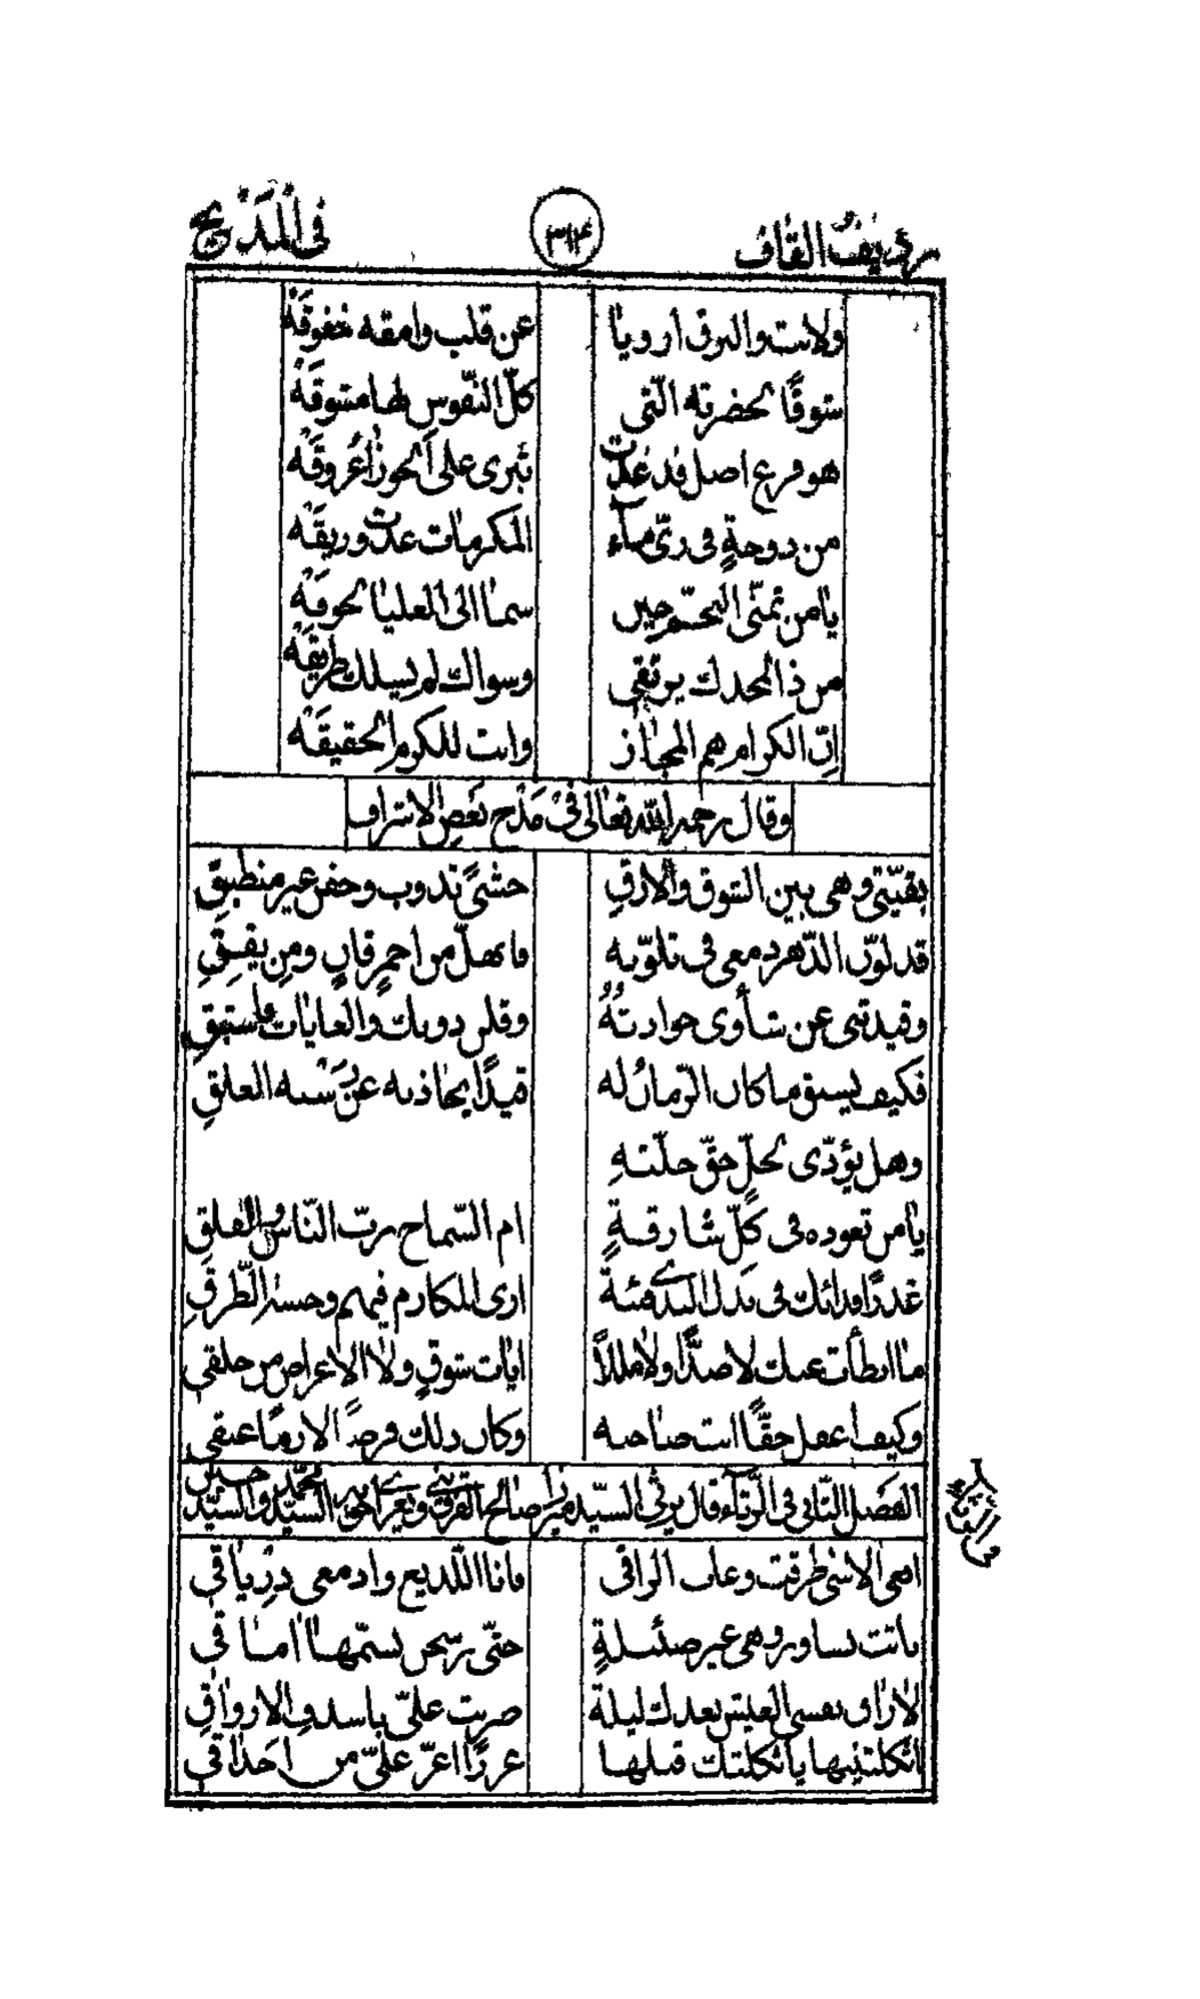 رديف القاف ٣١٤ في المديح
ولانت والبرق ارويا عن قلب وامقه خفوقه
شوقًا لحضرته التي كلّ النّفوس لها مشوقه
هو فرع اصل قد غدت تبرى على الجوزا عروقه
من دوحةٍ في ريّ ماء المكرمات غدت وريقه
يا من تمنّى النجم حين سما الى العليا لحوقه
من ذا لمجدك يرتقي وسواك لم يسلك طريقه
انّ الكرام هم المجاز وانت للكرم الحقيقه
وقال رحمه الله تعالى في مدح بعض الاشراف
بقيّتي وهي بين الشوق والارق حشىً تذوب وجفن غير منطبقِ
قد لوّن الدّهر دمعي في تلوّنه ما نهلّ من احمرٍ قانٍ ومن يققِ
وقيدتني عن شأوى حوادثهُ وقلن دونك والغايات فاستبقِ
فكيف يسبق ما كان الزّمان له قيدًا يجاذبه عن الغلقِ
وهل يؤدّى لخلٍّ حقّ خلّتهِ
يا من تعوده في كلّ شارقةٍ ام السّماح بربّ النّاس والفلقِ
غدرًا فدائك في بذل الندى فئة ارى المكارم فيهم وحسنُ الطّرقِ
ما ابطأت عنك لا صدًّا ولا مللاً ايات شوقٍ ولا الاعراض من خلقي
وكيف اغفل حقًّا انت صاحبه وكان ذلك فرضاً لازمًا عنقي
الفصل الثّاني في الرّثآء قال يرثي السّيد ميرزا صالح القزويني ويعزي اخويه السيّد محمّد والسيّد حسين
في الرثاء
افعى الاسى طرقت وغاب الراقي فانا اللّديع وادمعي درياقي
باتت تساور وهي غير ضئيلةٍ حتّى رسحن بسمّها اماقي
لا راق نفسي العيش بعدك ليلة ضربت عليّ باسدف الارواقِ
اثكلتنيها يا ثكلتك قبلها غررًا اعزّ عليّ من احداقي